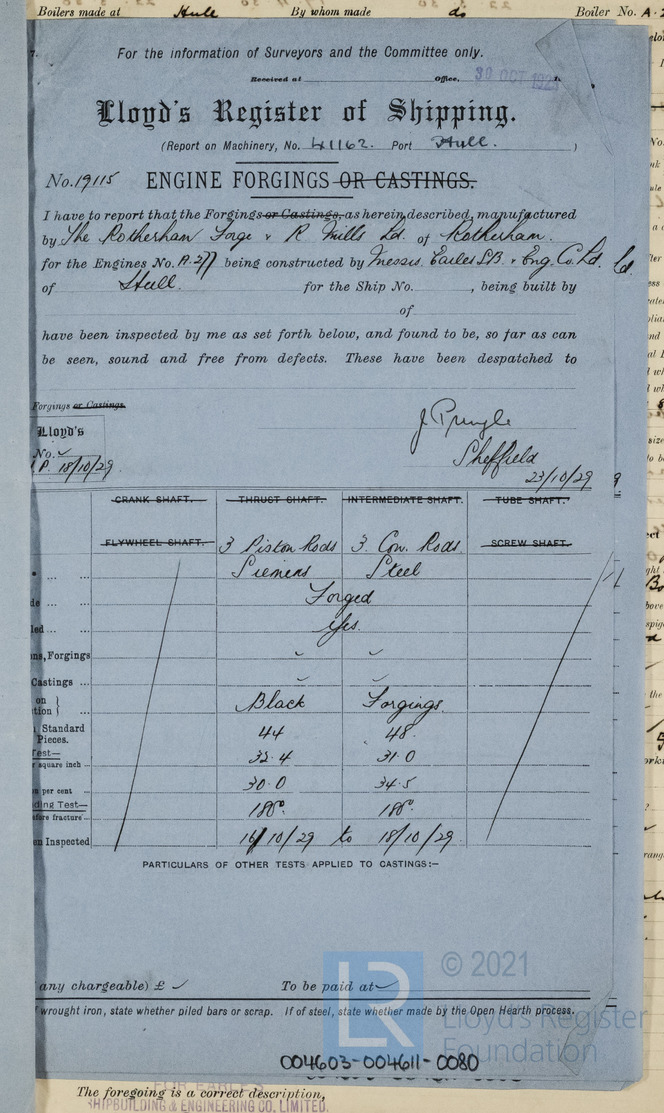 Boilers made at Hull By whom made do Boiler No. A.2
7. For the information of Surveyors and the Committee only.
Received at Office, 30 OCT 192
Lloyd's Register of Shipping.
(Report on Machinery, No. 41162. Port Hull. )
No. 19115 ENGINE FORGINGS OR CASTINGS.
I have to report that the Forgings or Castings, as herein described, manufactured
by The Rotherham Forge & R Mills Ld. of Rotherham.
for the Engines No. A.277 being constructed by Messrs. Earles S.B. & Eng. Co. Ld. Ld.
of Hull. for the Ship No. , being built by
of
have been inspected by me as set forth below, and found to be, so far as can
be seen, sound and free from defects. These have been despatched to
Forgings or Castings
J Pringle
Lloyd's
Sheffield
No. ✓
J.P. 18/10/29. 23/10/29 9
CRANK SHAFT. THRUST SHAFT. INTERMEDIATE SHAFT. TUBE SHAFT.
FLYWHEEL SHAFT. 3 Piston Rods 3. Con. Rods SCREW SHAFT.
... ... Siemens Steel
de ... ... Forged
led ... ... Yes.
ns, Forgings ✓ ✓
Castings ... ✓ ✓
on } tion } ... Black Forgings.
Standard Pieces. 44 48
Test—
r square inch 32.4 31.0
n per cent 30.0 34.5
ding Test—
fore fracture 180°. 180°.
n Inspected 16/10/29 to 18/10/29.
PARTICULARS OF OTHER TESTS APPLIED TO CASTINGS:—
any chargeable) £ ✓ To be paid at ✓
wrought iron, state whether piled bars or scrap. If of steel, state whether made by the Open Hearth process.
LR © 2021
Lloyd's Register
Foundation
004603-004611-0080
The foregoing is a correct description,
FOR EARLE'S
SHIPBUILDING & ENGINEERING CO. LIMITED.